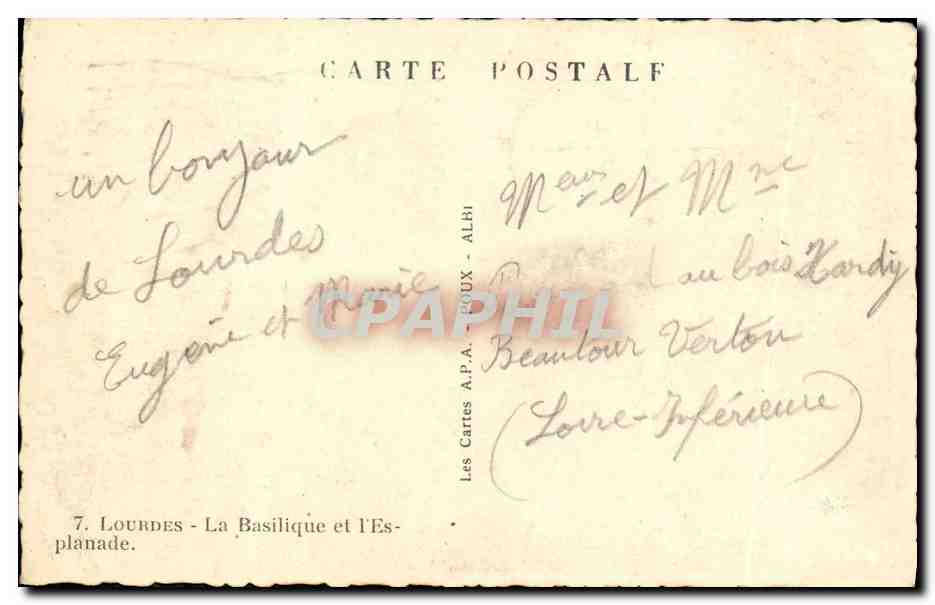 CARTE POSTALE
un bonjour
de Lourdes
Eugène et Marie
Les Cartes A.P.A. - POUX - ALBI
Meur et Mme
au bois Hardy
Beautour Vertou
(Loire-Inférieure)
CPAPHIL
7. LOURDES - La Basilique et l'Es-
planade.